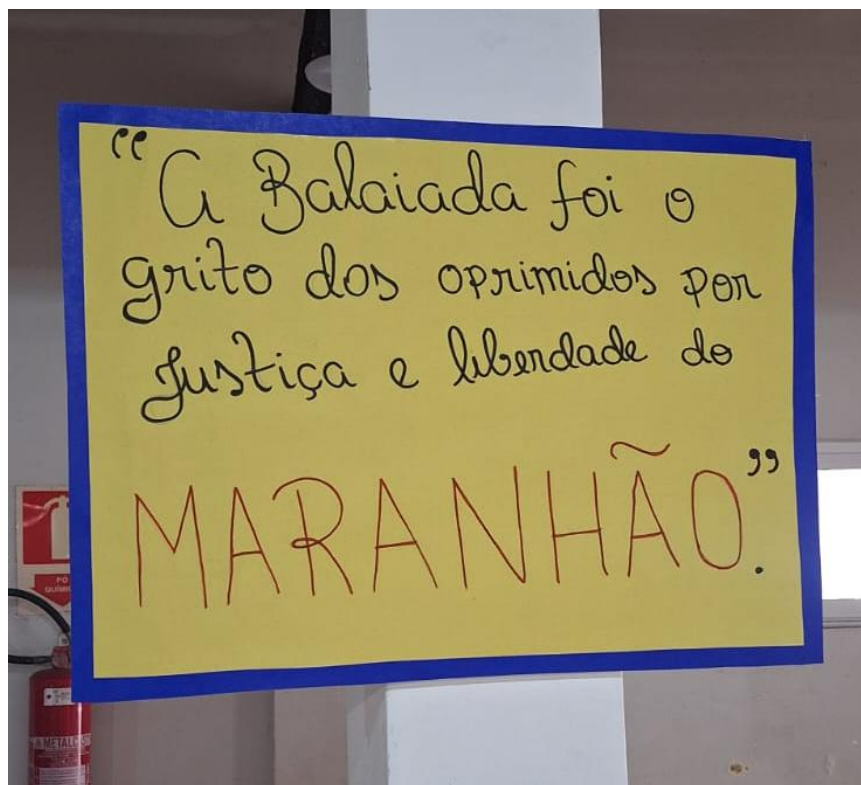 “A Balaiada foi o
grito dos oprimidos por
Justiça e liberdade do
MARANHÃO”.
PO
METALC